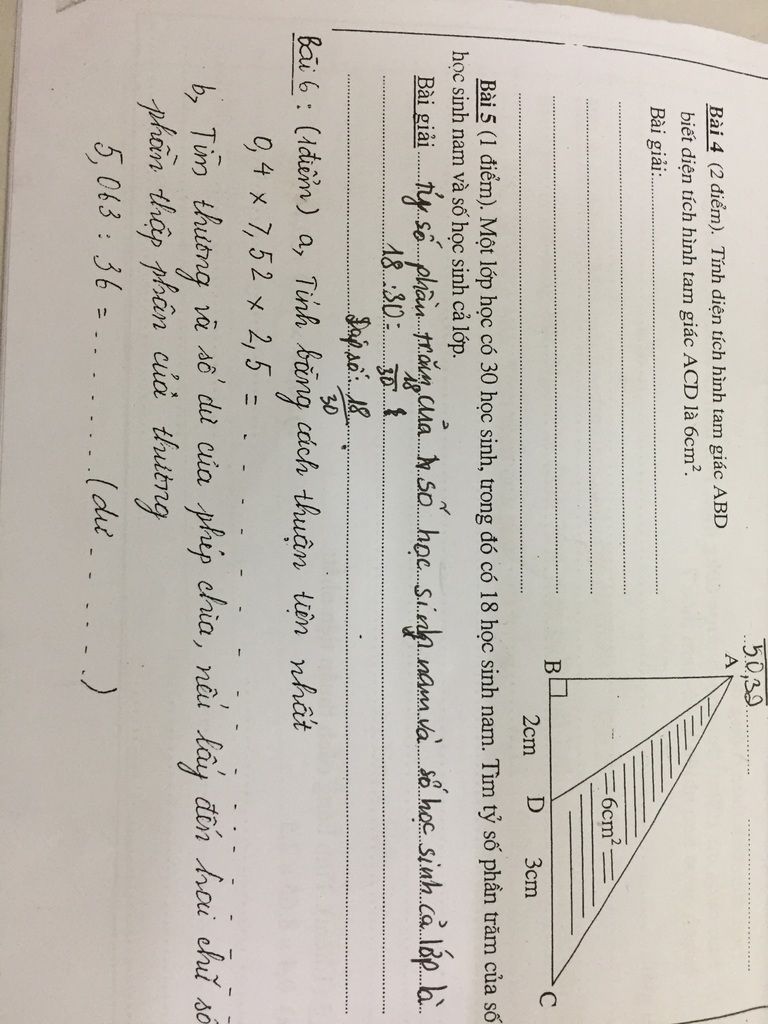 50,39
Bài 4 (2 điểm). Tính diện tích hình tam giác ABD
biết diện tích hình tam giác ACD là 6cm².
Bài giải:
A
B
2cm
D
3cm
C
6cm²
Bài 5 (1 điểm). Một lớp học có 30 học sinh, trong đó có 18 học sinh nam. Tìm tỷ số phần trăm của số
học sinh nam và số học sinh cả lớp.
Bài giải tỷ số phần trăm của số học sinh nam và số học sinh cả lớp là
18 : 30 = 18/30
Đáp số: 18/30
Bài 6 : (1điểm) a, Tính bằng cách thuận tiện nhất
0,4 x 7,52 x 2,5 =
b, Tìm thương và số dư của phép chia, nếu lấy đến hai chữ số
phần thập phân của thương
5,063 : 36 = (dư )